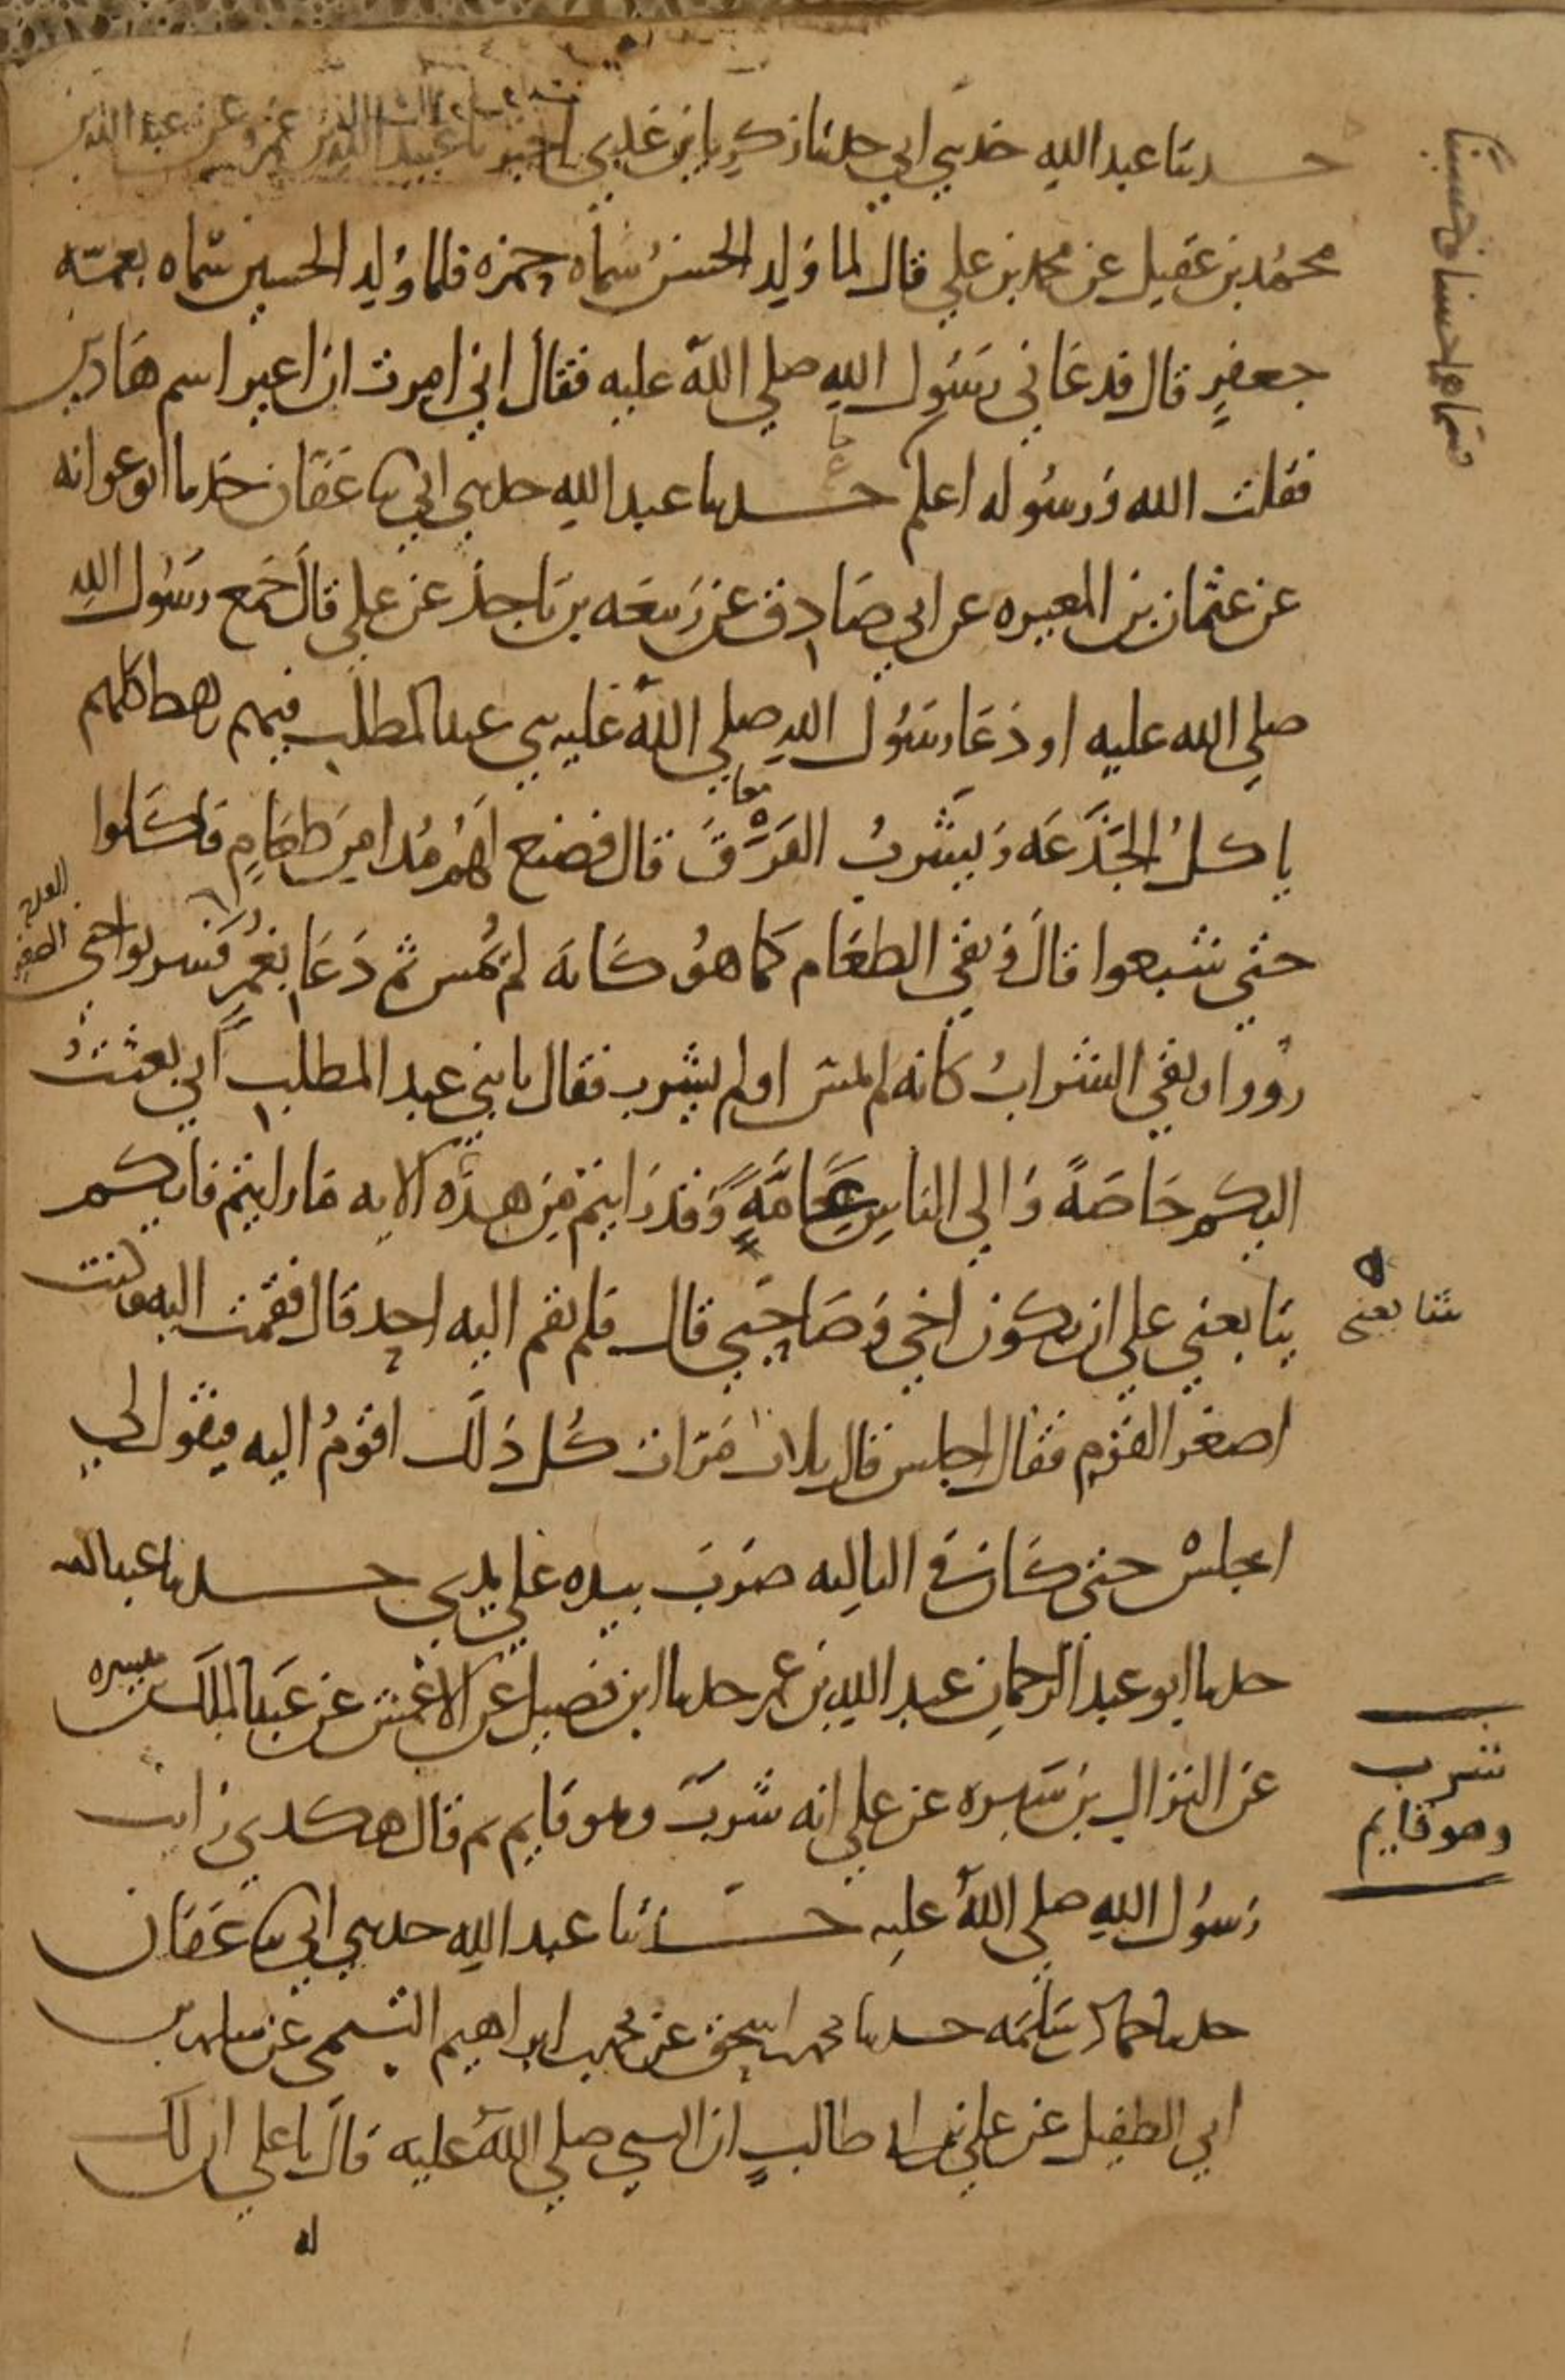 حدثنا عبد الله حدثني ابي حدثنا زكريا بن عدي اخبرنا عبيد الله بن عمرو عن عبد الله بن
محمد بن عقيل عن محمد بن علي قال لما ولد الحسن سماه حمزه فلما ولد الحسين سماه بعمه
جعفر قال فدعاني رسول الله صلي الله عليه فقال اني امرت ان اغير اسم هاذين
فقلت الله ورسوله اعلم حدثنا عبد الله حدثني ابي ثنا عفان حدثنا ابو عوانه
فسماهما حسنا وحسينا
عن عثمان بن المغيره عن ابي صادق عن ربيعه بن ناجذ عن علي قال جمع رسول الله
صلي الله عليه او دعا رسول الله صلي الله عليه بني عبد المطلب فيهم رهط كلهم
ياكل الجذعه ويشرب الفرق قال فصنع لهم مدا من طعام فاكلوا
معا
حتي شبعوا قال وبقي الطعام كما هو كانه لم يمس ثم دعا بغمر فشربوا حتي
القدح
الصغير
رووا وبقي الشراب كانه لم يمس او لم يشرب فقال يا بني عبد المطلب اني بعثت
اليكم خاصة والي الناس عامة وقد رايتم من هذه الايه ما رايتم فايكم
يتابعني علي ان يكون اخي وصاحبي قال فلم يقم اليه احد قال فقمت اليه وكنت
يتابعني
اصغر القوم فقال اجلس قال ثلاث مرات كل ذلك اقوم اليه فيقول لي
اجلس حتي كان في الثالثه ضرب بيده علي يدي حدثنا عبد الله
حدثنا ابو عبد الرحمان عبد الله بن عمر حدثنا ابن فضيل عن الاعمش عن عبد الملك بن ميسره
عن النزال بن سبره عن علي انه شرب وهو قايم ثم قال هكذي رايت
شرب
وهو قايم
رسول الله صلي الله عليه حدثنا عبد الله حدثني ابي ثنا عفان
حدثنا حماد بن سلمه حدثنا محمد بن اسحق عن محمد بن ابراهيم التيمي عن سلمه بن
ابي الطفيل عن علي بن ابي طالب ان النبي صلي الله عليه قال يا علي ان لك